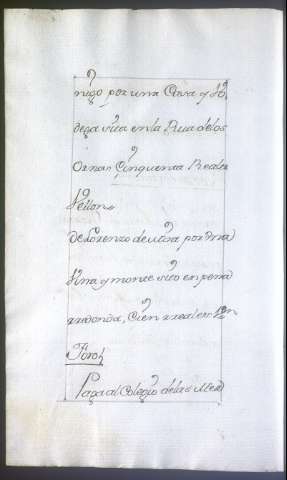 nigo por una Casa y Bo,
dega sita en la Rua de los
Ornos Çinquenta Reales
Vellon
De Lorenzo de utora por Una
Vina y monte sito en pena
rredonda, Çien rreales Vn
Foros
Paga al Colegio de las Mer